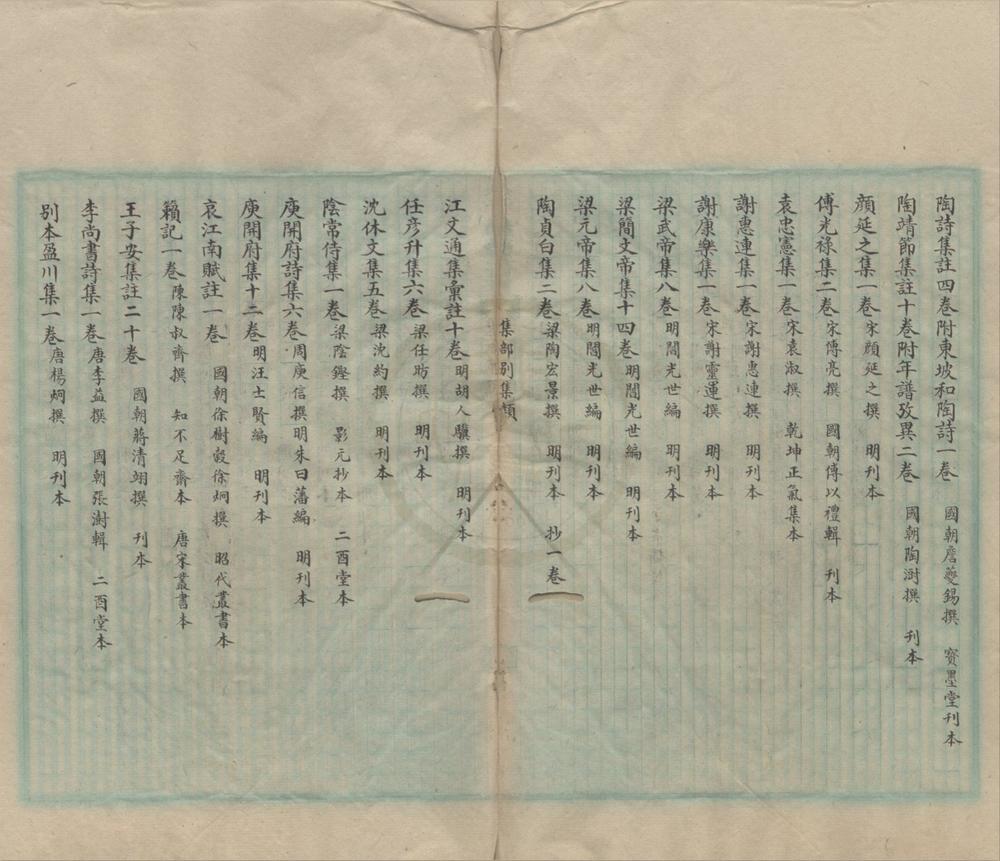 陶詩集註四卷附東坡和陶詩一卷 國朝詹夔錫撰 寶墨堂刊本
陶靖節集註十卷附年譜攷異二卷 國朝陶澍撰 刊本
顏延之集一卷宋顏延之撰 明刊本
傅光祿集二卷宋傅亮撰 國朝傅以禮輯 刊本
袁忠憲集一卷宋袁淑撰 乾坤正氣集本
謝惠連集一卷宋謝惠連撰 明刊本
謝康樂集一卷宋謝靈運撰 明刊本
梁武帝集八卷明閻光世編 明刊本
梁簡文帝集十四卷明閻光世編 明刊本
梁元帝集八卷明閻光世編 明刊本
陶貞白集二卷梁陶宏景撰 明刊本 抄一卷
集部別集類
江文通集彙註十卷明胡人驥撰 明刊本
任彥升集六卷梁任昉撰 明刊本
沈休文集五卷梁沈約撰 明刊本
陰常侍集一卷梁陰鏗撰 影元抄本 二酉堂本
庾開府詩集六卷周庾信撰明朱曰藩編 明刊本
庾開府集十二卷明汪士賢編 明刊本
哀江南賦註一卷 國朝徐樹穀徐炯撰 昭代叢書本
籟記一卷陳陳叔齊撰 知不足齋本 唐宋叢書本
王子安集註二十卷 國朝蔣清翊撰 刊本
李尚書詩集一卷唐李益撰 國朝張澍輯 二酉堂本
別本盈川集一卷唐楊炯撰 明刊本